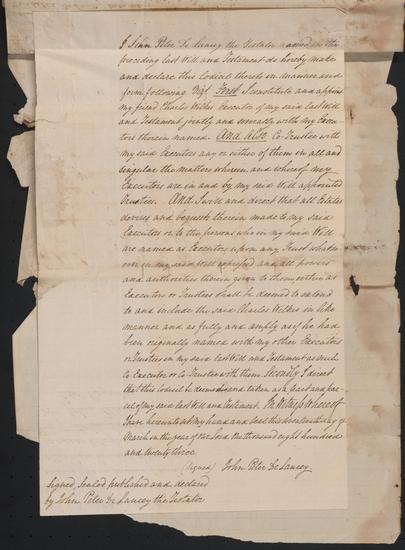 I John Peter De Lancey the Testator named in the
preceding last Will and Testament do hereby make
and declare this Codicil thereto in manner and
form following Vizt. First I constitute and appoint
my friend Charles Wilkes Executor of my said last Will
and Testament jointly and severally with my Execu
tors therein named. And also Co-Trustee with
my said Executors any or either of them in all and
singular the matters wherein and whereof my
Executors are in and by my said Will appointed
Trustees. And I will and direct that all Estates
devises and bequests therein made to my said
Executors or to the persons who in my said Will
are named as Executors upon any Trust whatso
ever in my said Will expressed and all powers
and authorities therein given to them either as
Executors or Trustees shall be deemed to extend
to and include the said Charles Wilkes in like
manner and as fully and amply as if he had
been originally named with my other Executors
or Trustees in my said last Will and Testament as such
Co Executor or Co-Trustee with them. Secondly I direct
that this codicil be deemed and taken as a part and par
cel of my said last Will and Testament. In Witness whereof
I have hereunto set my hand and Seal this day of
March in the year of our Lord one thousand eight hundred
and twenty three.
(Signed) John Peter De Lancey
Signed Sealed published and declared
by John Peter De Lancey the Testator